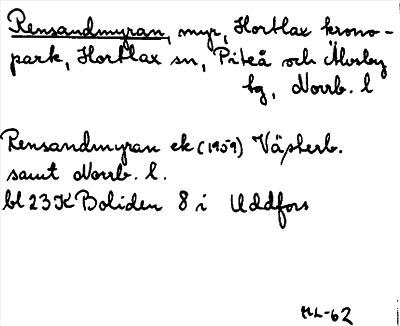 Rensandmyran, myr, Hortlax krono-
park, Hortlax sn, Piteå och Älvsby
tg, Norrb. l
Rensandmyran ek (1959) Västerb.
samt Norrb. l.
bl 23K Boliden 8 i Uddfors
HL-62